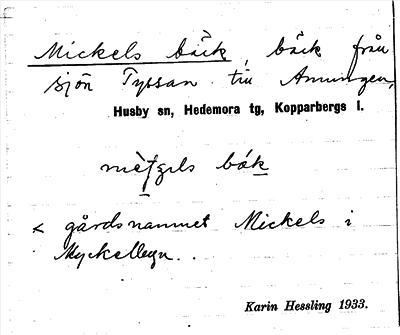 Mickels bäck, bäck från
sjön Tyssan till Amungen,
Husby sn, Hedemora tg, Kopparbergs l.
bäk
< gårdsnamnet Mickels i
Myckelbyn.
Karin Hessling 1933.